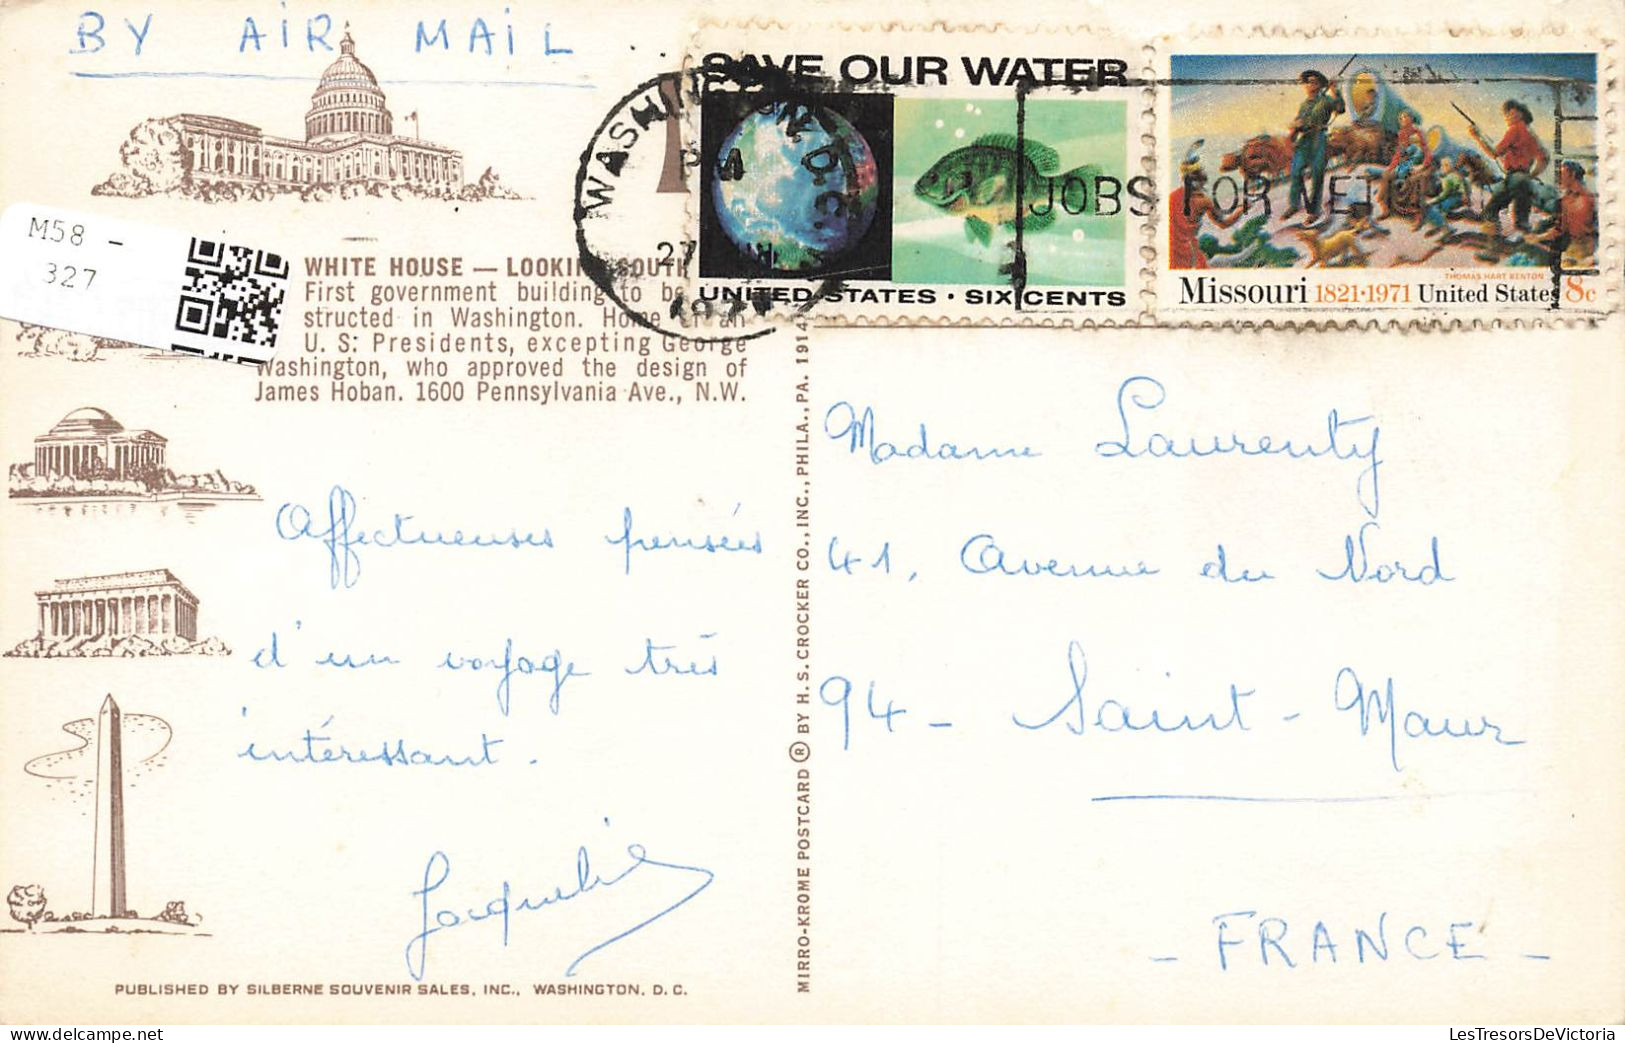 BY AIR MAIL
SAVE OUR WATER
UNITED STATES · SIX CENTS
Missouri 1821·1971 United States 8c
THOMAS HART BENTON
WASHINGTON, D.C.
PM
27
JOBS FOR
M58 -
327
WHITE HOUSE — LOOKING SOUTH
First government building to be
structed in Washington. Home of all
U. S. Presidents, excepting George
Washington, who approved the design of
James Hoban. 1600 Pennsylvania Ave., N.W.
Affectueuses pensées
d'un voyage très
intéressant.
Jacqueline
PUBLISHED BY SILBERNE SOUVENIR SALES, INC., WASHINGTON, D. C.
MIRRO-KROME POSTCARD ® BY H. S. CROCKER CO., INC., PHILA., PA. 1914
Madame Laurenty
41, Avenue du Nord
94 - Saint-Maur
- FRANCE -
LesTresorsDeVictoria